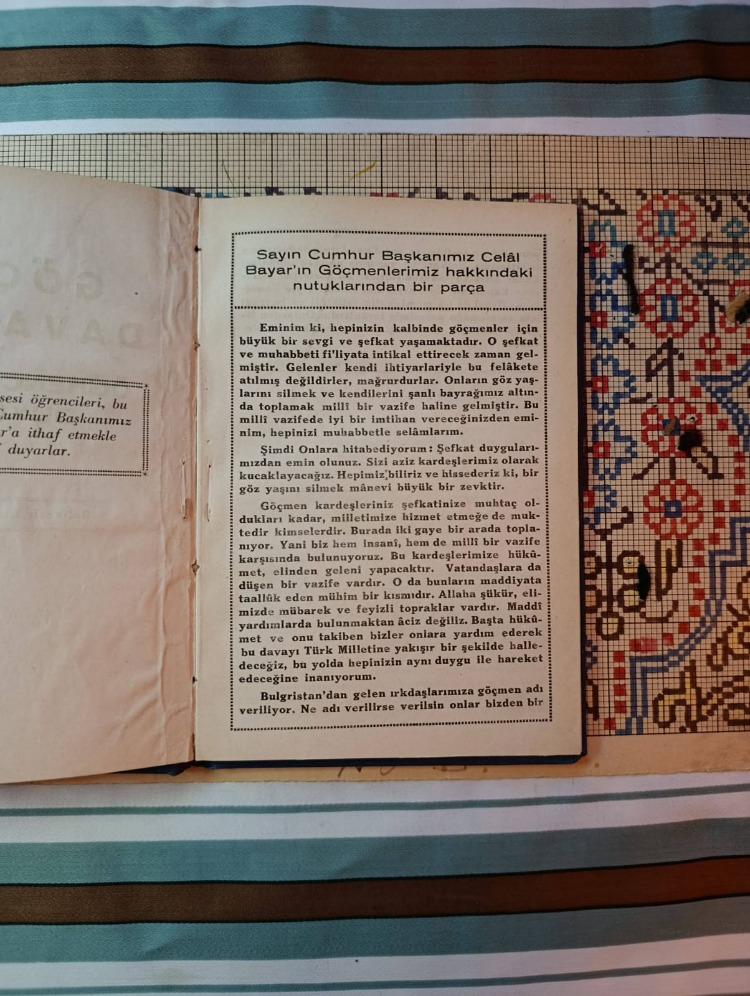 sesi öğrencileri, bu
Cumhur Başkanımız
r'a ithaf etmekle
duyarlar.
Sayın Cumhur Başkanımız Celâl
Bayar'ın Göçmenlerimiz hakkındaki
nutuklarından bir parça
Eminim ki, hepinizin kalbinde göçmenler için
büyük bir sevgi ve şefkat yaşamaktadır. O şefkat
ve muhabbeti fi'liyata intikal ettirecek zaman gel-
miştir. Gelenler kendi ihtiyarlariyle bu felâkete
atılmış değildirler, mağrurdurlar. Onların göz yaş-
larını silmek ve kendilerini şanlı bayrağımız altın-
da toplamak millî bir vazife haline gelmiştir. Bu
millî vazifede iyi bir imtihan vereceğinizden emi-
nim, hepinizi muhabbetle selâmlarım.
Şimdi Onlara hitabediyorum : Şefkat duyguları-
mızdan emin olunuz. Sizi aziz kardeşlerimiz olarak
kucaklayacağız. Hepimiz biliriz ve hissederiz ki, bir
göz yaşını silmek mânevi büyük bir zevktir.
Göçmen kardeşleriniz şefkatinize muhtaç ol-
dukları kadar, milletimize hizmet etmeğe de muk-
tedir kimselerdir. Burada iki gaye bir arada topla-
nıyor. Yani biz hem insanî, hem de millî bir vazife
karşısında bulunuyoruz. Bu kardeşlerimize hükû-
met, elinden geleni yapacaktır. Vatandaşlara da
düşen bir vazife vardır. O da bunların maddiyata
taallûk eden mühim bir kısmıdır. Allaha şükür, eli-
mizde mübarek ve feyizli topraklar vardır. Maddî
yardımlarda bulunmaktan âciz değiliz. Başta hükû-
met ve onu takiben bizler onlara yardım ederek
bu davayı Türk Milletine yakışır bir şekilde halle-
deceğiz, bu yolda hepinizin aynı duygu ile hareket
edeceğine inanıyorum.
Bulgristan'dan gelen ırkdaşlarımıza göçmen adı
veriliyor. Ne adı verilirse verilsin onlar bizden bir